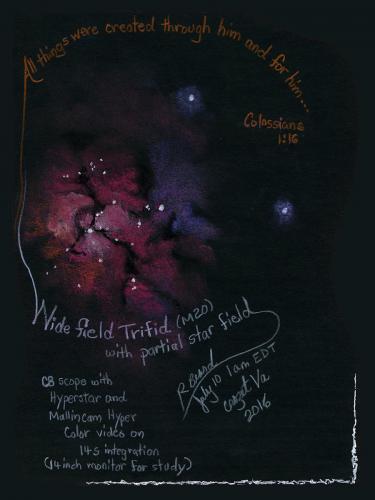 All things were created through him and for him...
Colossians
1:16
Wide field Trifid (M20)
with partial star field
C8 scope with
Hyperstar and
Mallincam Hyper
Color video on
14s integration
(14 inch monitor for study)
July 10 1am EDT
Va
2016